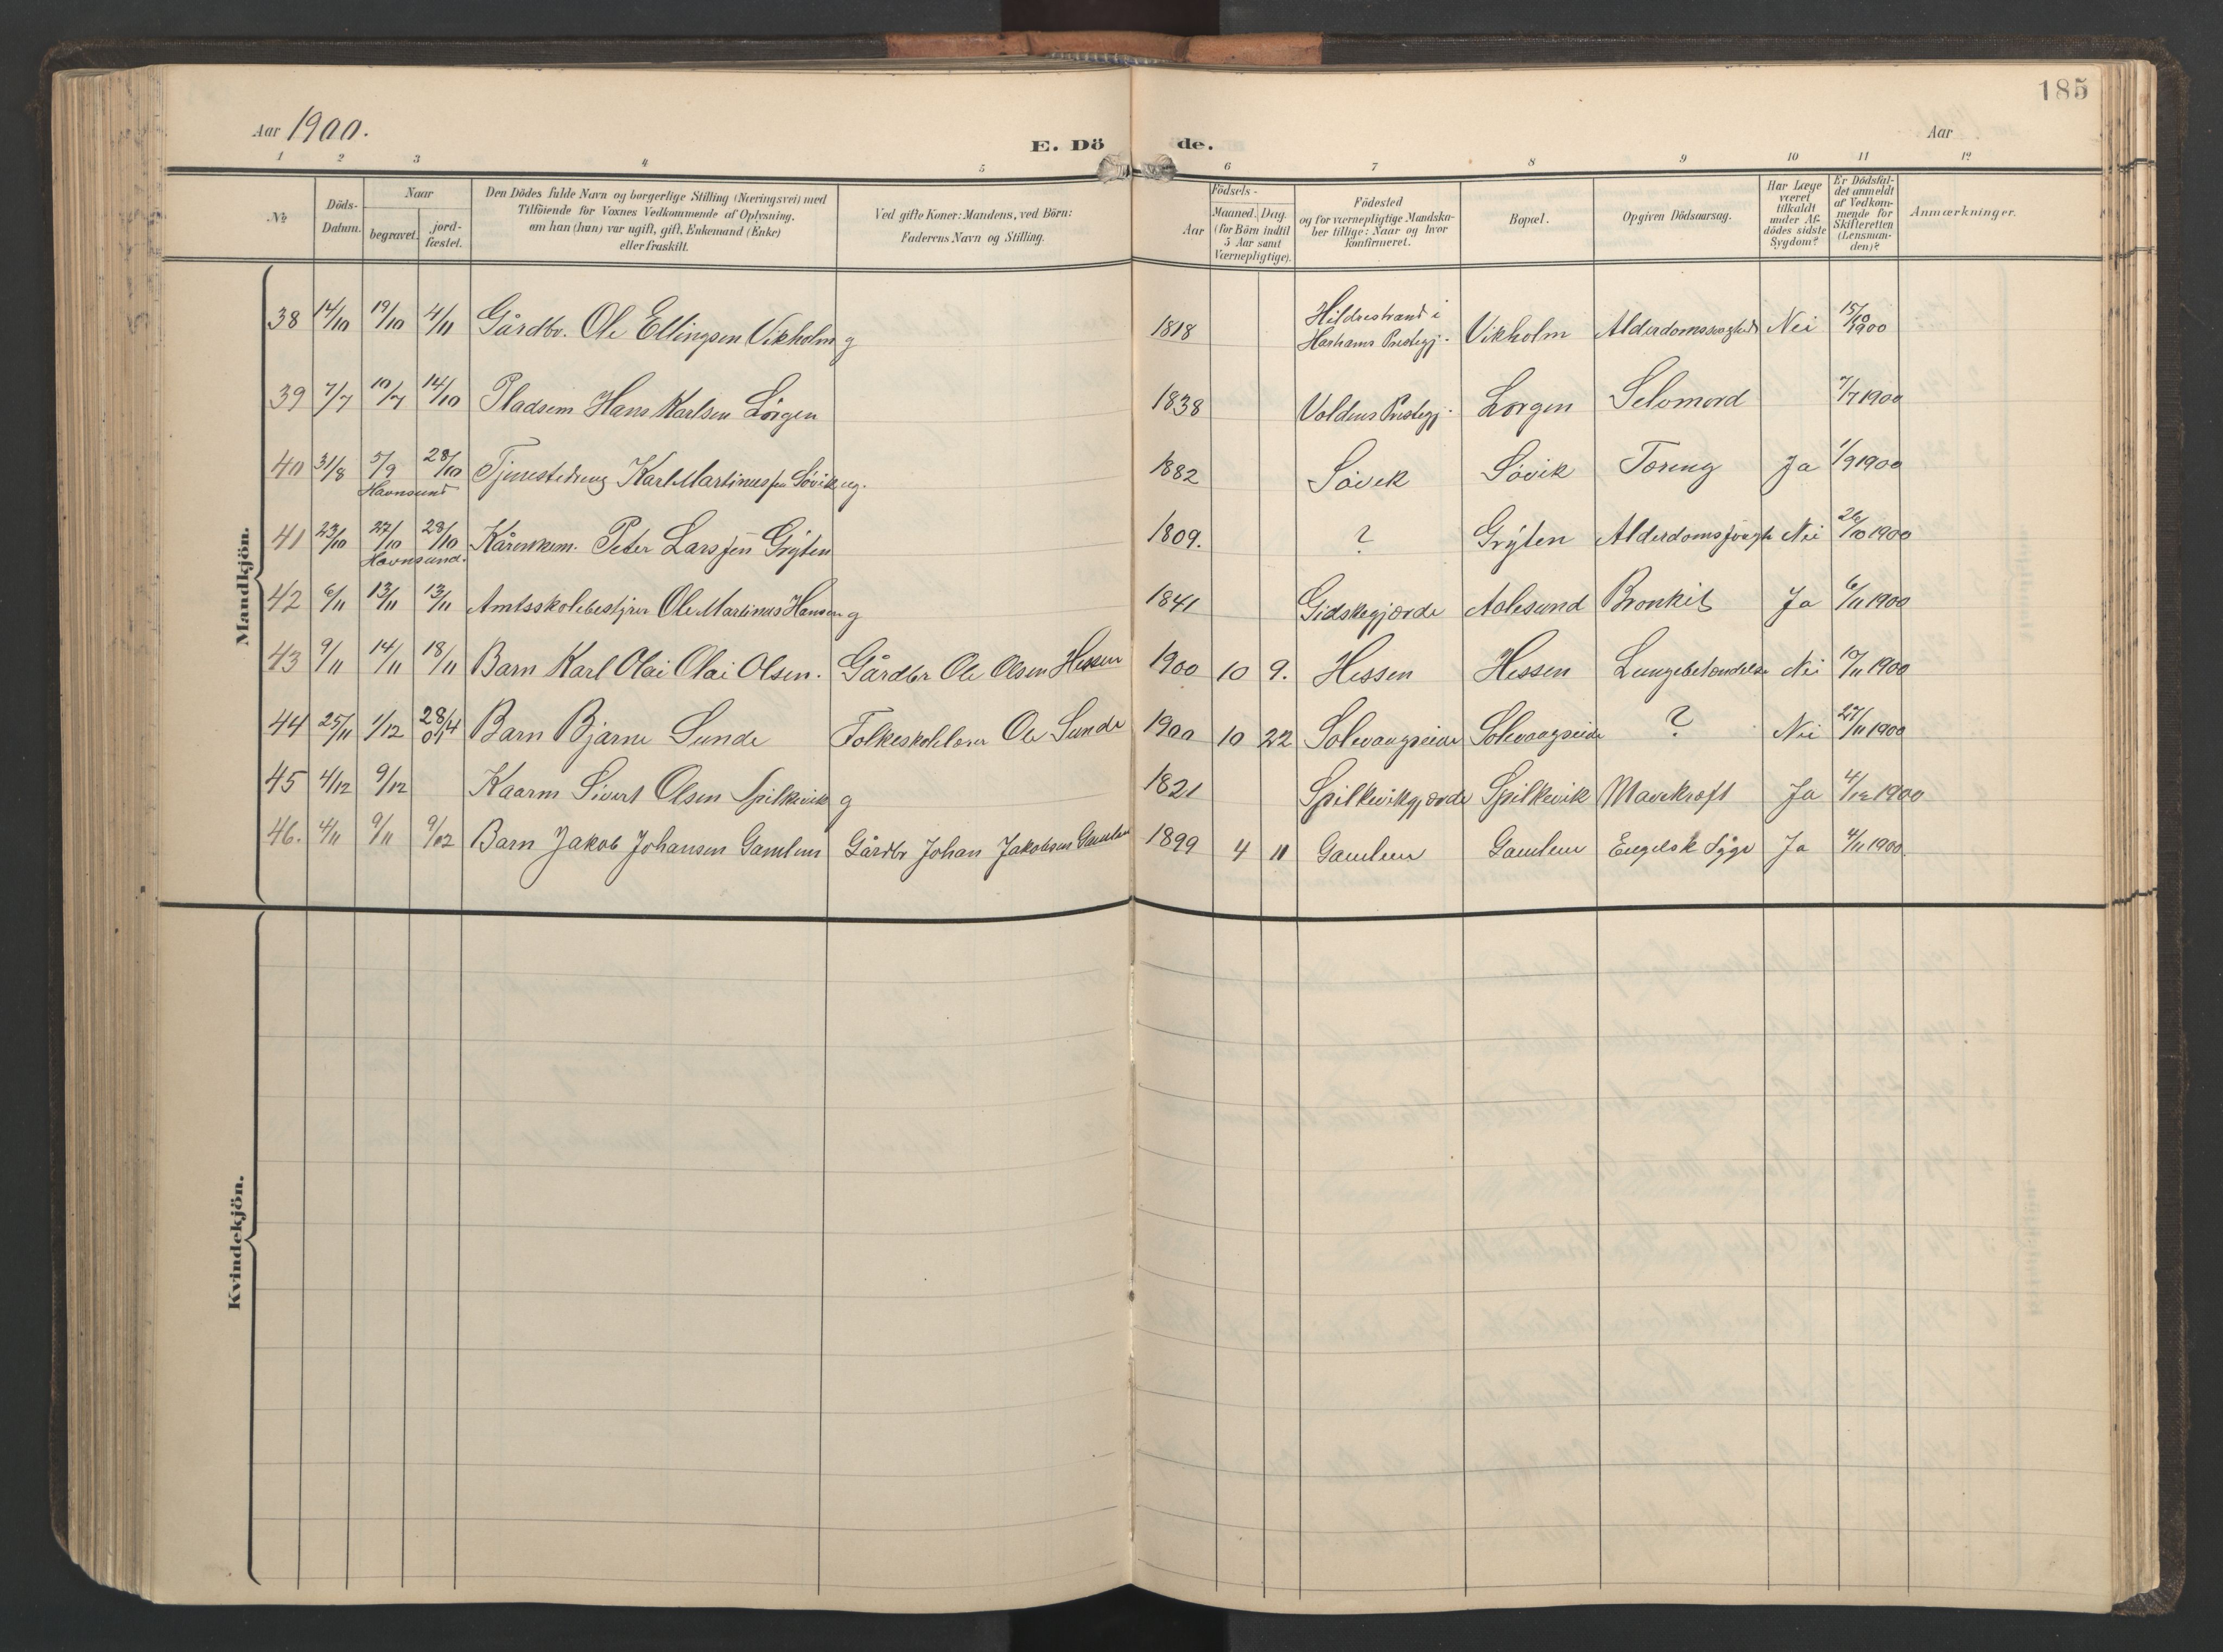 185
Aar 1900.
E. Dö de.
Aar
1 2 3 4 5 6 7 8 9 10 11 12
No
Döds-Datum.
Naar
begravet.
jord-fæstet.
Den Dödes fulde Navn og borgerlige Stilling (Næringsvei) med
Tilföiende for Voxnes Vedkommende af Oplysning,
om han (hun) var ugift, gift, Enkemand (Enke)
eller fraskilt.
Ved gifte Koner: Mandens, ved Börn:
Faderens Navn og Stilling.
Födsels-
Aar
Maaned. Dag.
(for Börn indtil
5 Aar samt
Værnepligtige).
Födested
og for værnepligtige Mandska-
ber tillige: Naar og hvor
konfirmeret.
Bopæl.
Opgiven Dödsaarsag.
Har Læge
været
tilkaldt
under Af-
dödes sidste
Sygdom?
Er Dödsfal-
det anmeldt
af Vedkom-
mende for
Skifteretten
(Lensman-
den)?
Anmærkninger.
Mandkjön.
38 14/10 19/10 4/11 Gårdbr. Ole Ellingsen Vikholm g 1818 Hildrestrand i Harhams Prestegj. Vikholm Alderdomssvaghed Nei 15/10 1900
39 7/7 10/7 14/10 Pladsem Hans Karlsen Lörgen 1838 Voldens Prestegj. Lörgen Selvmord 7/7 1900
40 31/8 5/9 28/10 Havnsund Tjenestedreng Karl Martinussen Sövik ug. 1882 Sövik Sövik Toring Ja 1/9 1900
41 23/10 27/10 28/10 Havnsund. Kårenkem. Peter Larssen Grýten 1809. ? Grýten Alderdomssvagh Nei 26/10 1900
42 6/11 13/11 13/11 Amtsskolebestyrer Ole Martinus Hansen g 1841 Gidskegjærde Aalesund Bronkit Ja 6/11 1900
43 9/11 14/11 18/11 Barn Karl Olai Olai Olsen. Gårdbr Ole Olsen Hessen 1900 10 9. Hessen Hessen Lungebetændelse Nei 10/11 1900
44 25/11 1/12 28/4 01 Barn Bjarne Sunde Folkeskolelærer Ole Sunde 1900 10 22 Solevaagseide Solevaagseide ? Nei 27/11 1900
45 4/12 9/12 Kaarm Sivert Olsen Spilkevik g 1821 Spilkevikgjærde Spilkevik Mavekræft Ja 4/12 1900
46. 4/11 9/11 9/12 Barn Jakob Johansen Gamlem Gårdbr Johan Jakobsen Gamlem 1899 4 11 Gamlem Gamlem Engelsk Syge Ja 4/11 1900.
Kvindekjön.